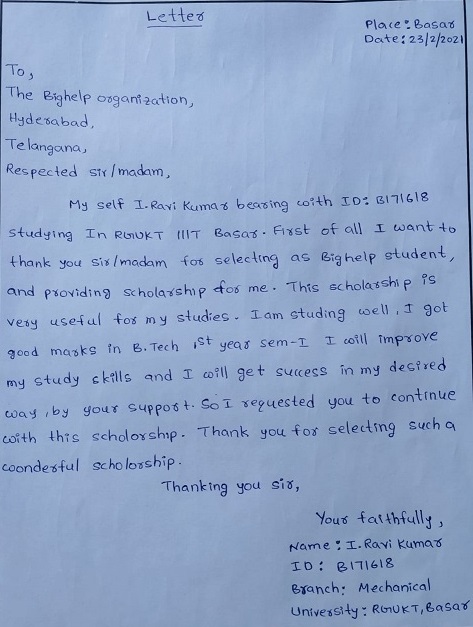 Letter
Place: Basar
Date: 23/2/2021
To,
The Bighelp organization,
Hyderabad,
Telangana,
Respected sir/madam,
My self I.Ravi Kumar bearing with ID: B171618
studying In RGUKT IIIT Basar. First of all I want to
thank you sir/madam for selecting as Bighelp student,
and providing scholarship for me. This scholarship is
very useful for my studies. I am studing well, I got
good marks in B.Tech 1st year sem-I I will improve
my study skills and I will get success in my desired
way, by your support. So I requested you to continue
with this scholorship. Thank you for selecting such a
woonderful scholorship.
Thanking you sir,
Your faithfully,
Name: I.Ravi Kumar
ID: B171618
Branch: Mechanical
University: RGUKT, Basar